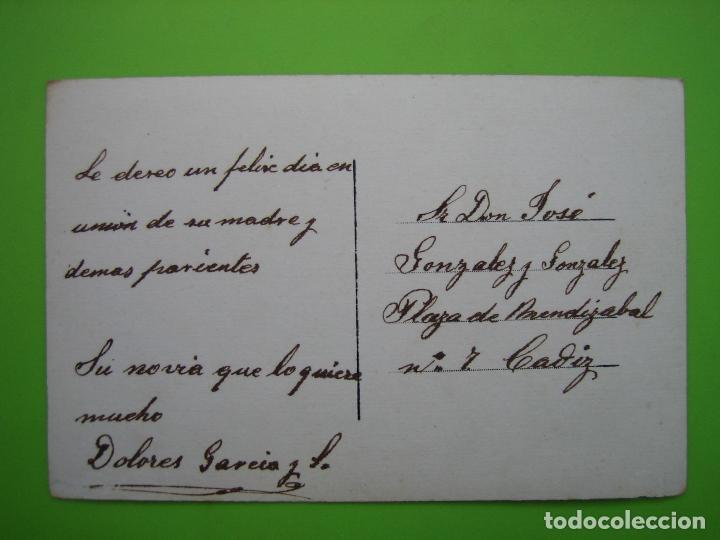 Le deseo un felix dia en
union de su madre y
demas parientes
Su novia que lo quiere
mucho
Dolores Garcia y S.
Sr Don José
Gonzalez y Gonzalez
Plaza de Mendizabal
nº 7 Cadiz
todocoleccion.net